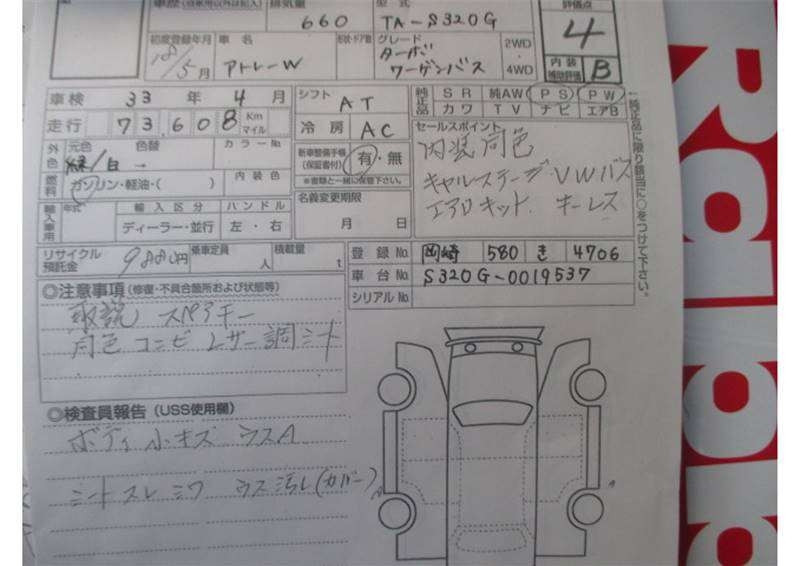 車歴 排気量 型式 評価点
660 TA-S320G 4
初度登録年月 車名 形状・ドア数 グレード 2WD
18/5月 アトレーW ターボ ワーゲンバス ・4WD 内装補助評価 B
車検 33年 4月 シフト AT 純正品 SR 純AW PS PW
カワ TV ナビ エアB
走行 73,608 Km マイル 冷房 AC セールスポイント
外色 元色 色替 カラーNo 新車整備手帳(保証書付) 有・無 内装同色
緑/白 → ※書類と一緒に保管下さい。 キャルステージVWバス
燃料 ガソリン・軽油・( ) 内装色 エアロキット キーレス
輸入車用 年式 輸入区分 ハンドル 名義変更期限
ディーラー・並行 左・右 月 日
↑純正品に限り該当に○をつけて下さい。
リサイクル預託金 9880円 乗車定員 人 積載量 t 登録No. 岡崎 580 き 4706
車台No. S320G-0019537
シリアルNo.
◎注意事項(修復・不具合箇所および状態等)
取説 スペアキー
同色コンビレザー調シート
◎検査員報告(USS使用欄)
ボディ小キズ ウスA
シートスレ シワ ウス汚レ(カバー)